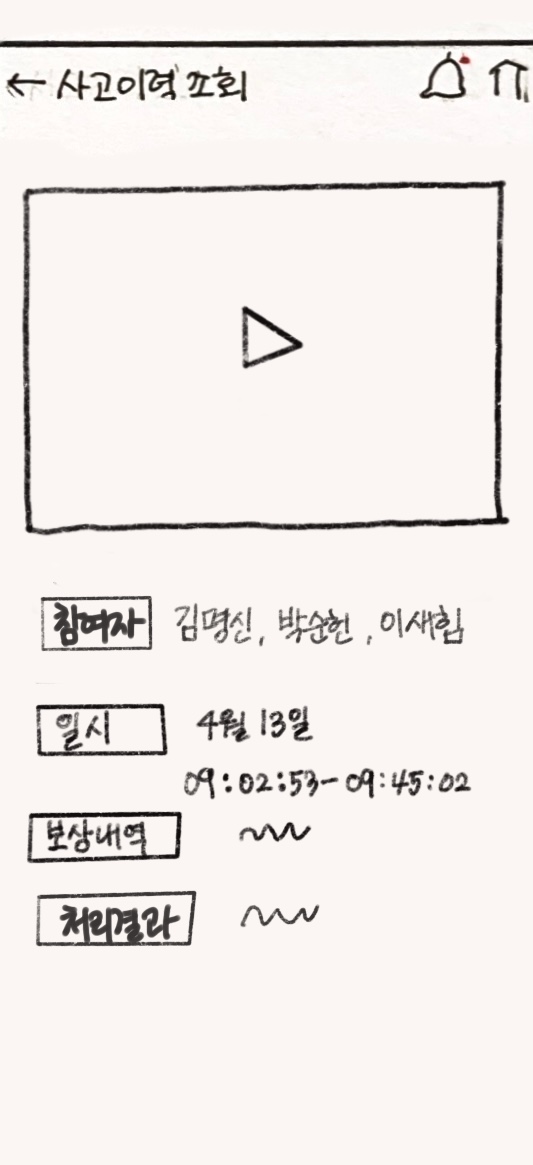 ← 사고이력 조회
참여자 김명신, 박순헌, 이새힘
일시 4월 13일
09:02:53-09:45:02
보상내역
처리결과